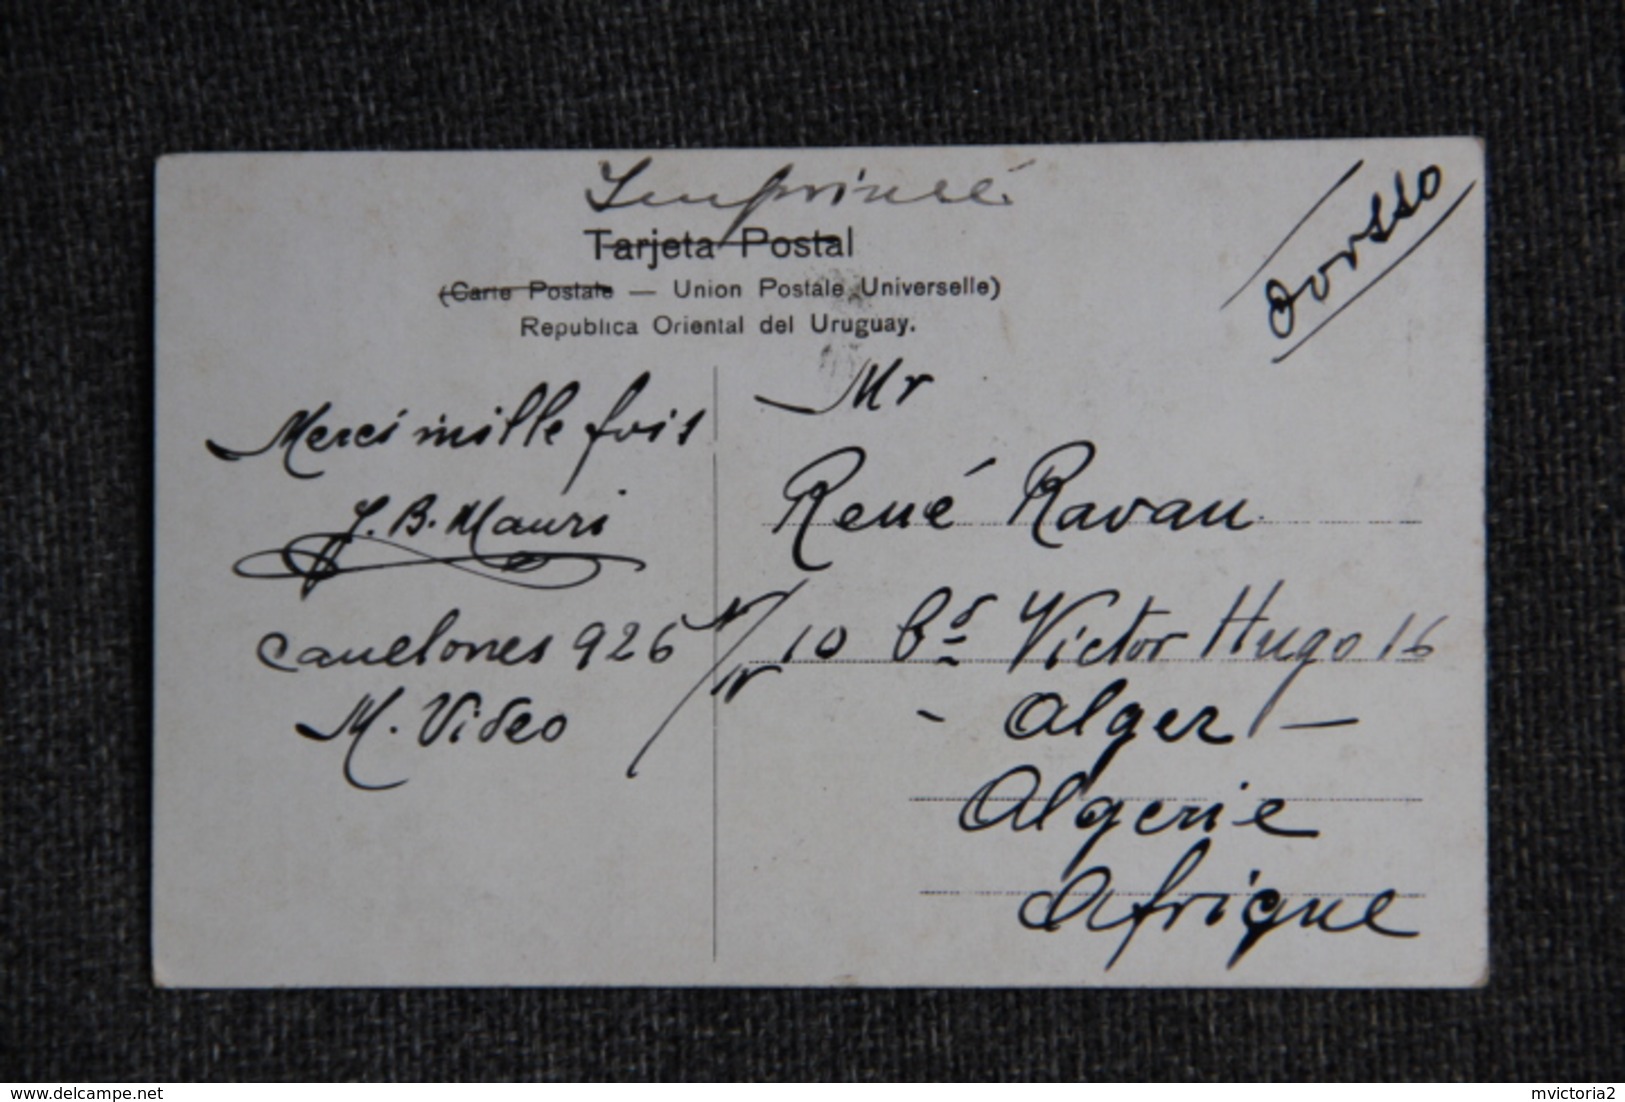 Imprimé
Tarjeta Postal
(Carte Postale — Union Postale Universelle)
Republica Oriental del Uruguay.
dorsso
Merci mille fois
J. B. Mauri
Canelones 926
M. Video
Mr
René Ravan
10 Bd Victor Hugo 16
- Alger -
Algerie
Afrique
delcampe.net
mvictoria2